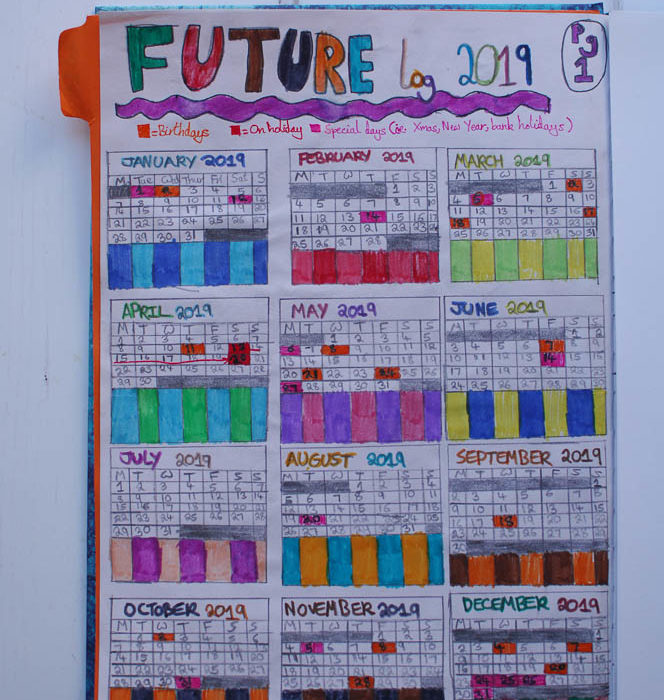 FUTURE log 2019
Pg 1
=Birthdays =On holiday =Special days (ie: Xmas, New Year, bank holidays)
JANUARY 2019
M Tue Wed Thur Fri Sat S
1 2 3 4 5 6
7 8 9 10 11 12
14 15 16 17 18 19 20
21 22 23 24 25 26 27
28 29 30 31
FEBRUARY 2019
M T W T F S S
1 2 3
4 5 6 7 8 9 10
11 12 13 14 15 16 17
18 19 20 21 22 23 24
25 26 27 28
MARCH 2019
M T W T F S S
1 2 3
4 5 6 7 8 9 10
11 12 13 14 15 16 17
18 19 20 21 22 23 24
25 26 27 28 29 30 31
APRIL 2019
M T W T F S S
1 2 3 4 5 6 7
8 9 10 11 12
15 16 17 18 20 21
22 23 24 25 26 27 28
29 30
MAY 2019
M T W T F S S
1 2 3 4 5
6 8 9 10 11 12
13 14 15 16 17 18 19
20 21 22 23 24 25 26
27 28 29 30 31
JUNE 2019
M T W T F S S
1 2
3 4 5 6 7 8 9
10 11 12 13 14 15 16
17 18 19 20 21 22 23
24 25 26 27 28 29 30
JULY 2019
M T W T F S S
1 2 3 4 5 6 7
8 9 10 11 12 13 14
15 16 17 18 19 20 21
22 23 24 25 26 27 28
29 30 31
AUGUST 2019
M T W T F S S
5 6 7 8 9 10 11
19 20
26 27 28 29 30 31
SEPTEMBER 2019
M T W T F S S
1
2 3 4 5 6 7 8
9 10 11 12 13 14 15
16 17 18 19 20 21 22
23 24 25 26 27 28 29
30
OCTOBER 2019
M T W T F S S
1 2 3 4 5 6
31
NOVEMBER 2019
M T W T F S S
1 2 3
4 5 6 7 8 9 10
28
DECEMBER 2019
M T W T F S S
1
2 3 4 5 6 7 8
20
24 25 26